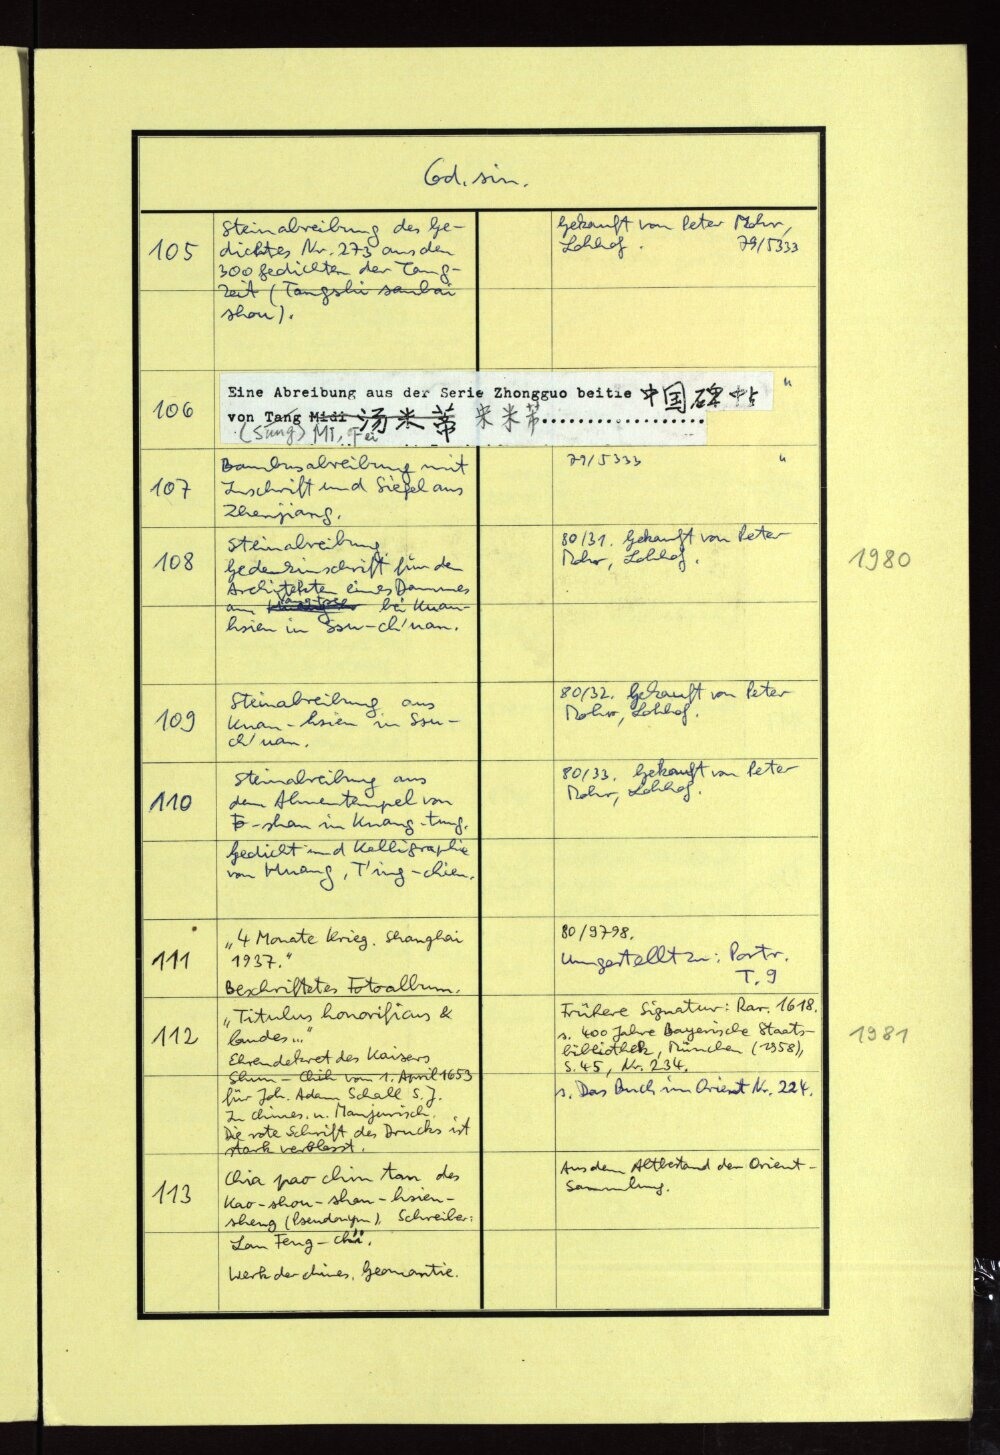 Cod. sin.
105
Steinabreibung des Ge-
dichtes Nr. 273 aus den
300 Gedichten der Tang-
Zeit (Tangshi sanbai
shou).
Gekauft von Peter Mohr,
Lohhof. 79/5333
106
Eine Abreibung aus der Serie Zhongguo beitie 中国碑帖
von Tang Midi 汤米芾 宋米芾..................
(Sung) Mi, Fei
"
107
Bambusabreibung mit
Inschrift und Siegel aus
Zhenjiang.
79/5333 "
108
Steinabreibung
Gedenkinschrift für den
Architekten eines Dammes
am bei Kuan-
hsien in Ssu-ch'uan.
80/31. Gekauft von Peter
Mohr, Lohhof.
1980
109
Steinabreibung aus
Kuan-hsien in Ssu-
ch'uan.
80/32. Gekauft von Peter
Mohr, Lohhof.
110
Steinabreibung aus
dem Ahnentempel von
Fo-shan in Kuang-tung.
Gedicht und Kalligraphie
von Huang, T'ing-chien.
80/33. Gekauft von Peter
Mohr, Lohhof.
111
„4 Monate Krieg. Shanghai
1937."
Beschriftetes Fotoalbum.
80/9798.
Umgestellt zu: Portr.
T. 9
112
„Titulus honorificus &
laudes..."
Ehrendekret des Kaisers
Shun-Chih vom 1. April 1653
für Joh. Adam Schall S.J.
In chines. u. Manjurisch.
Die rote Schrift des Drucks ist
stark verblasst.
Frühere Signatur: Rar. 1618.
s. 400 Jahre Bayerische Staats-
bibliothek, München (1958),
S. 45, Nr. 234.
s. Das Buch im Orient Nr. 224.
1981
113
Chia pao chin tan des
Kao-shou-shan-hsien-
sheng (Pseudonym). Schreiber:
Lan Feng-
Werk der chines. Geomantie.
Aus dem Altbestand der Orient-
Sammlung.